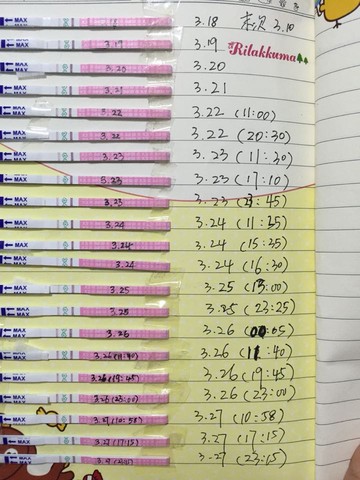 MAX 3.18 末次 3.10
MAX 3.19 3.19
Rilakkuma
MAX 3.20 3.20
MAX 3.21 3.21
MAX 3.22 3.22 (11:00)
MAX 3.22 3.22 (20:30)
MAX 3.23 3.23 (11:30)
MAX 3.23 3.23 (17:10)
MAX 3.23 3.23 (23:45)
MAX 3.24 3.24 (11:35)
MAX 3.24 3.24 (15:25)
MAX 3.24 3.24 (16:30)
MAX 3.25 3.25 (13:00)
MAX 3.25 3.25 (23:25)
MAX 3.26 3.26 (00:05)
MAX 3.26 (11:40) 3.26 (11:40)
MAX 3.26 (19:45) 3.26 (19:45)
MAX 3.26 (23:00) 3.26 (23:00)
MAX 3.27 (10:58) 3.27 (10:58)
MAX 3.27 (17:15) 3.27 (17:15)
MAX 3.27 (23:15)